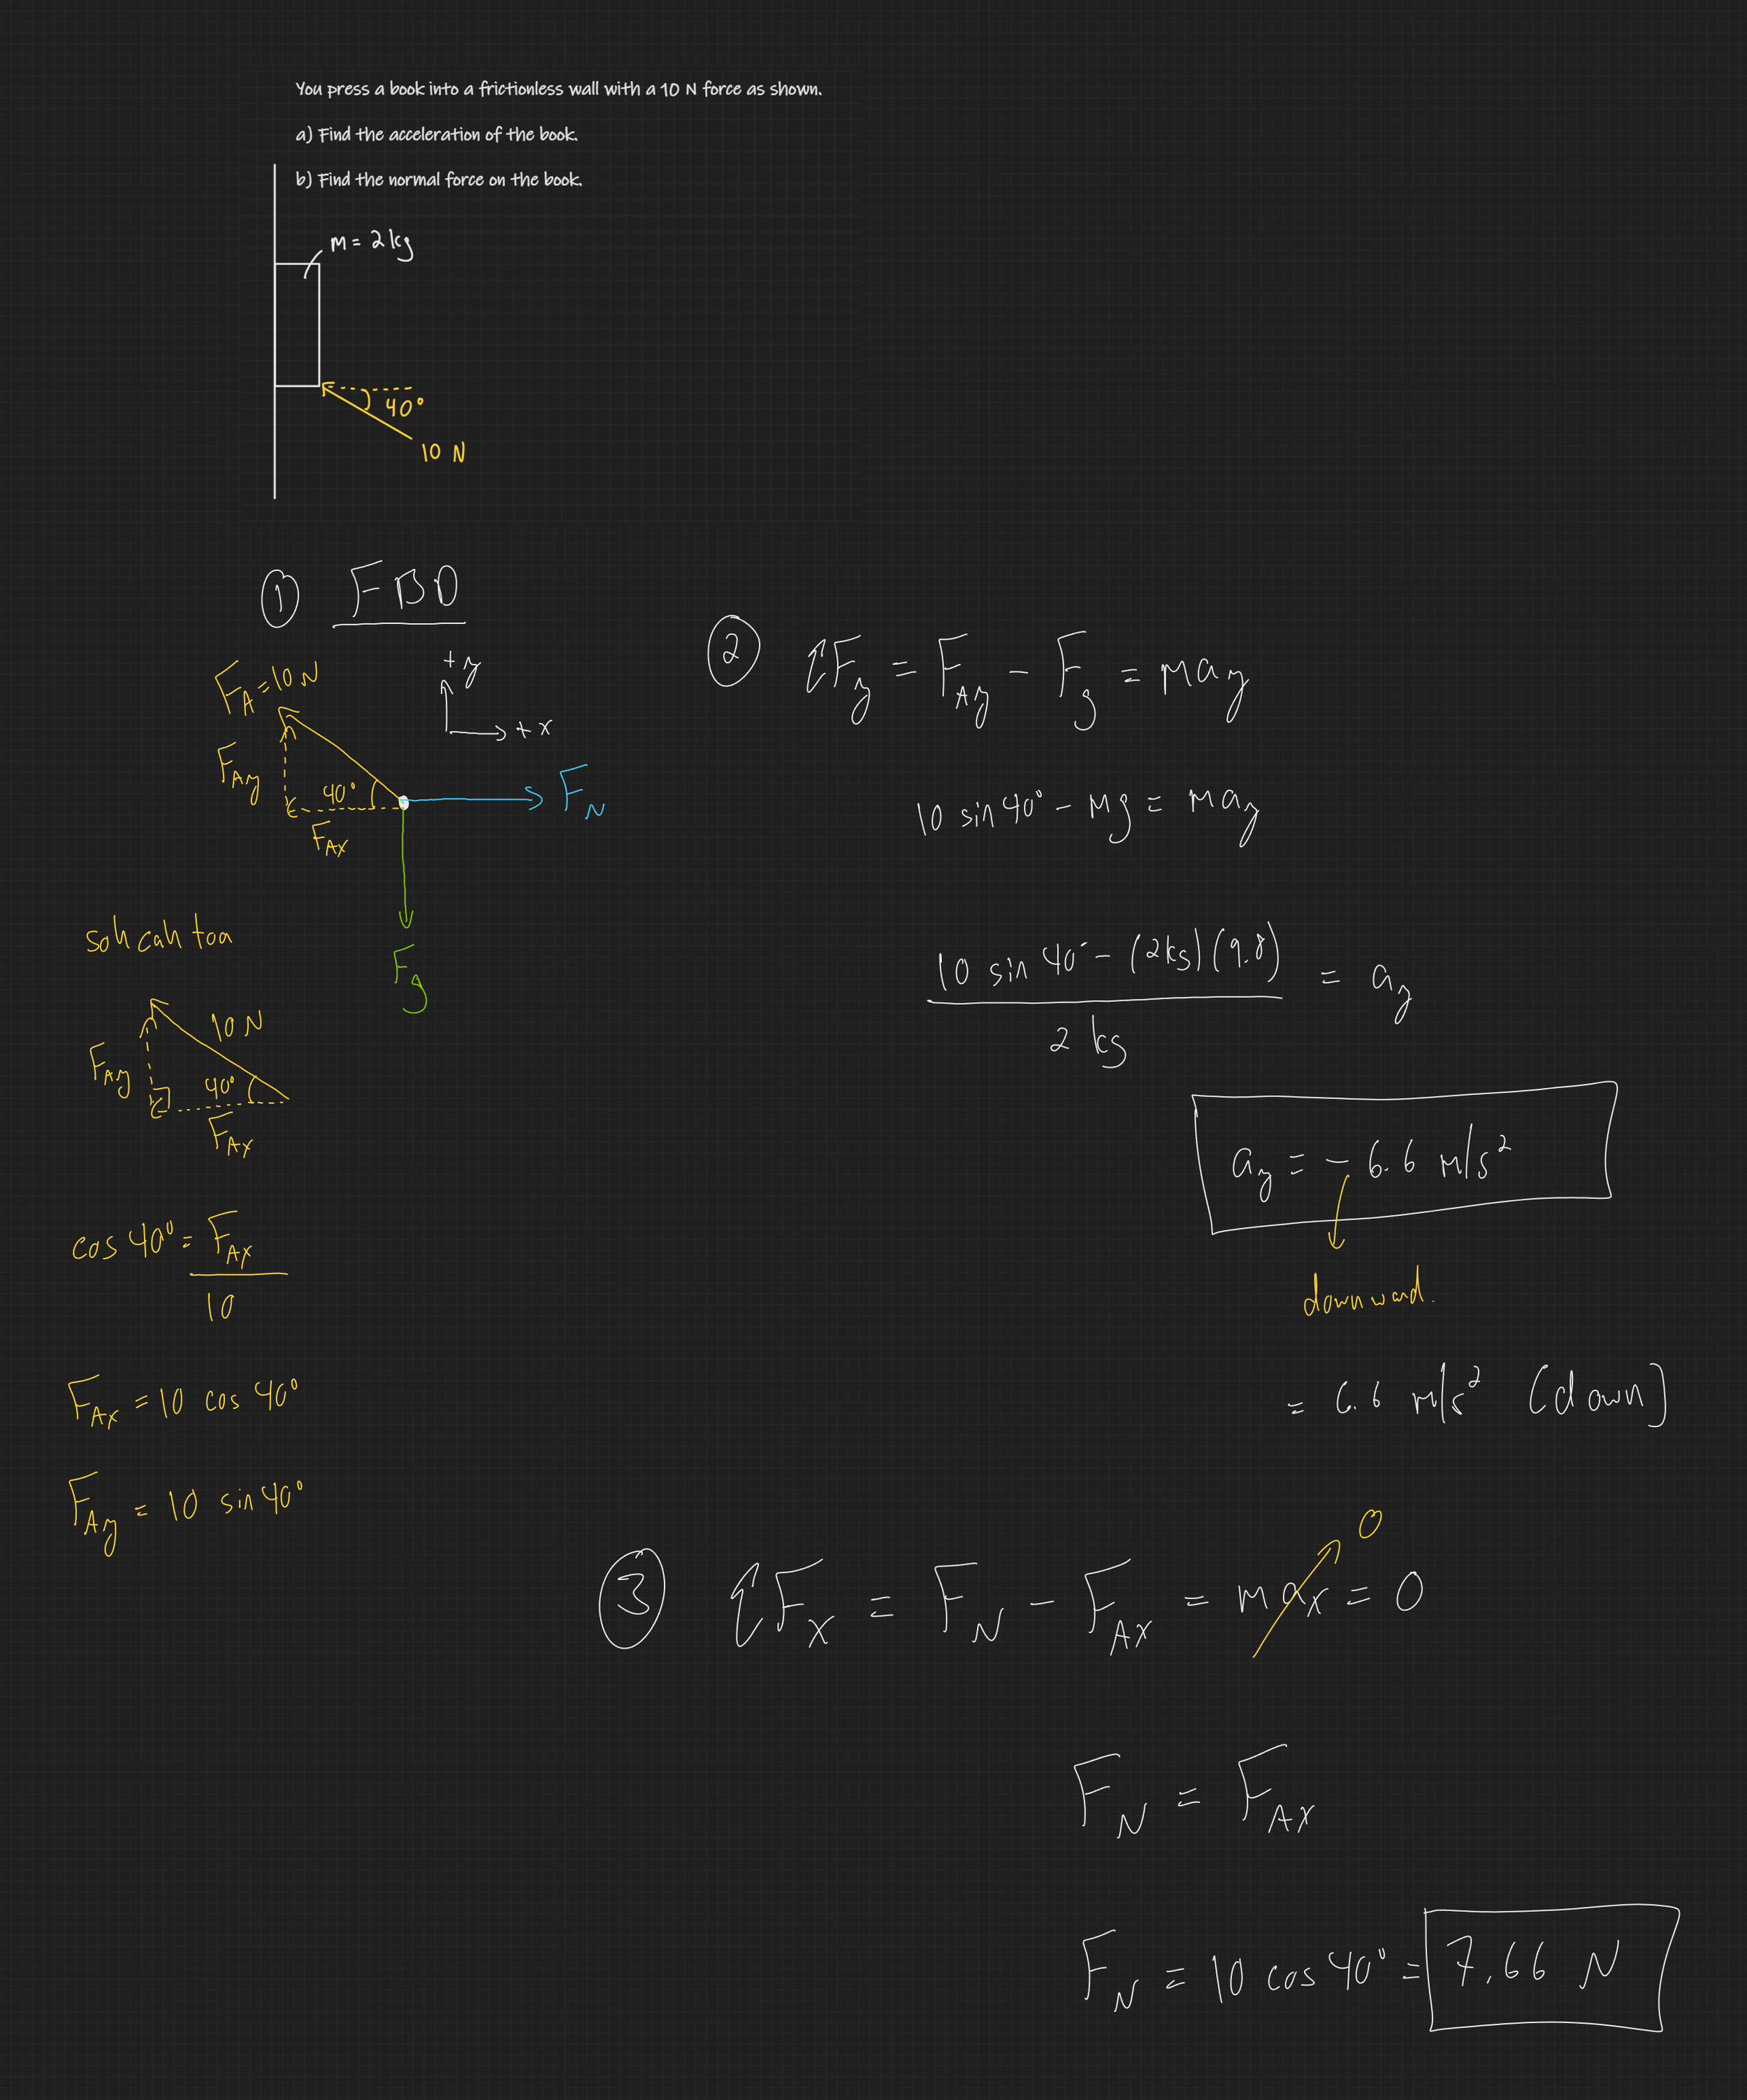 You press a book into a frictionless wall with a 10 N force as shown.
a) Find the acceleration of the book.
b) Find the normal force on the book.
m = 2 kg
40°
10 N
① FBD
F_A = 10 N
+y
+x
F_Ay
40°
F_Ax
F_N
F_g
soh cah toa
10 N
F_Ay
40°
F_Ax
cos 40° = F_Ax / 10
F_Ax = 10 cos 40°
F_Ay = 10 sin 40°
② ΣF_y = F_Ay - F_g = ma_y
10 sin 40° - mg = ma_y
10 sin 40° - (2kg)(9.8) / 2 kg = a_y
a_y = - 6.6 m/s²
downward.
= 6.6 m/s² (down)
0
③ ΣF_x = F_N - F_Ax = ma_x = 0
F_N = F_Ax
F_N = 10 cos 40° = 7.66 N